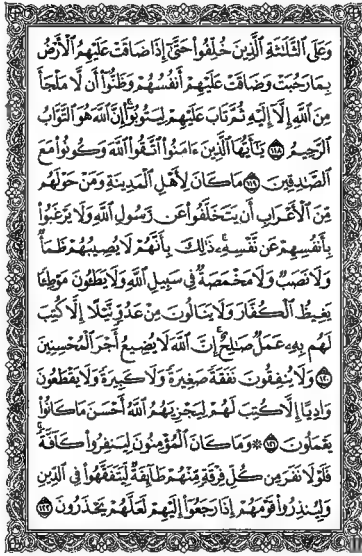 وَعَلَى ٱلثَّلَٰثَةِ ٱلَّذِينَ خُلِّفُوا۟ حَتَّىٰٓ إِذَا ضَاقَتْ عَلَيْهِمُ ٱلْأَرْضُ
بِمَا رَحُبَتْ وَضَاقَتْ عَلَيْهِمْ أَنفُسُهُمْ وَظَنُّوٓا۟ أَن لَّا مَلْجَأَ
مِنَ ٱللَّهِ إِلَّآ إِلَيْهِ ثُمَّ تَابَ عَلَيْهِمْ لِيَتُوبُوٓا۟ ۚ إِنَّ ٱللَّهَ هُوَ ٱلتَّوَّابُ
ٱلرَّحِيمُ ١١٨ يَٰٓأَيُّهَا ٱلَّذِينَ ءَامَنُوا۟ ٱتَّقُوا۟ ٱللَّهَ وَكُونُوا۟ مَعَ
ٱلصَّٰدِقِينَ ١١٩ مَا كَانَ لِأَهْلِ ٱلْمَدِينَةِ وَمَنْ حَوْلَهُم
مِّنَ ٱلْأَعْرَابِ أَن يَتَخَلَّفُوا۟ عَن رَّسُولِ ٱللَّهِ وَلَا يَرْغَبُوا۟
بِأَنفُسِهِمْ عَن نَّفْسِهِۦ ۚ ذَٰلِكَ بِأَنَّهُمْ لَا يُصِيبُهُمْ ظَمَأٌ
وَلَا نَصَبٌ وَلَا مَخْمَصَةٌ فِى سَبِيلِ ٱللَّهِ وَلَا يَطَـُٔونَ مَوْطِئًا
يَغِيظُ ٱلْكُفَّارَ وَلَا يَنَالُونَ مِنْ عَدُوٍّ نَّيْلًا إِلَّا كُتِبَ
لَهُم بِهِۦ عَمَلٌ صَٰلِحٌ ۚ إِنَّ ٱللَّهَ لَا يُضِيعُ أَجْرَ ٱلْمُحْسِنِينَ
١٢٠ وَلَا يُنفِقُونَ نَفَقَةً صَغِيرَةً وَلَا كَبِيرَةً وَلَا يَقْطَعُونَ
وَادِيًا إِلَّا كُتِبَ لَهُمْ لِيَجْزِيَهُمُ ٱللَّهُ أَحْسَنَ مَا كَانُوا۟
يَعْمَلُونَ ١٢١ ۞ وَمَا كَانَ ٱلْمُؤْمِنُونَ لِيَنفِرُوا۟ كَآفَّةً ۚ
فَلَوْلَا نَفَرَ مِن كُلِّ فِرْقَةٍ مِّنْهُمْ طَآئِفَةٌ لِّيَتَفَقَّهُوا۟ فِى ٱلدِّينِ
وَلِيُنذِرُوا۟ قَوْمَهُمْ إِذَا رَجَعُوٓا۟ إِلَيْهِمْ لَعَلَّهُمْ يَحْذَرُونَ ١٢٢